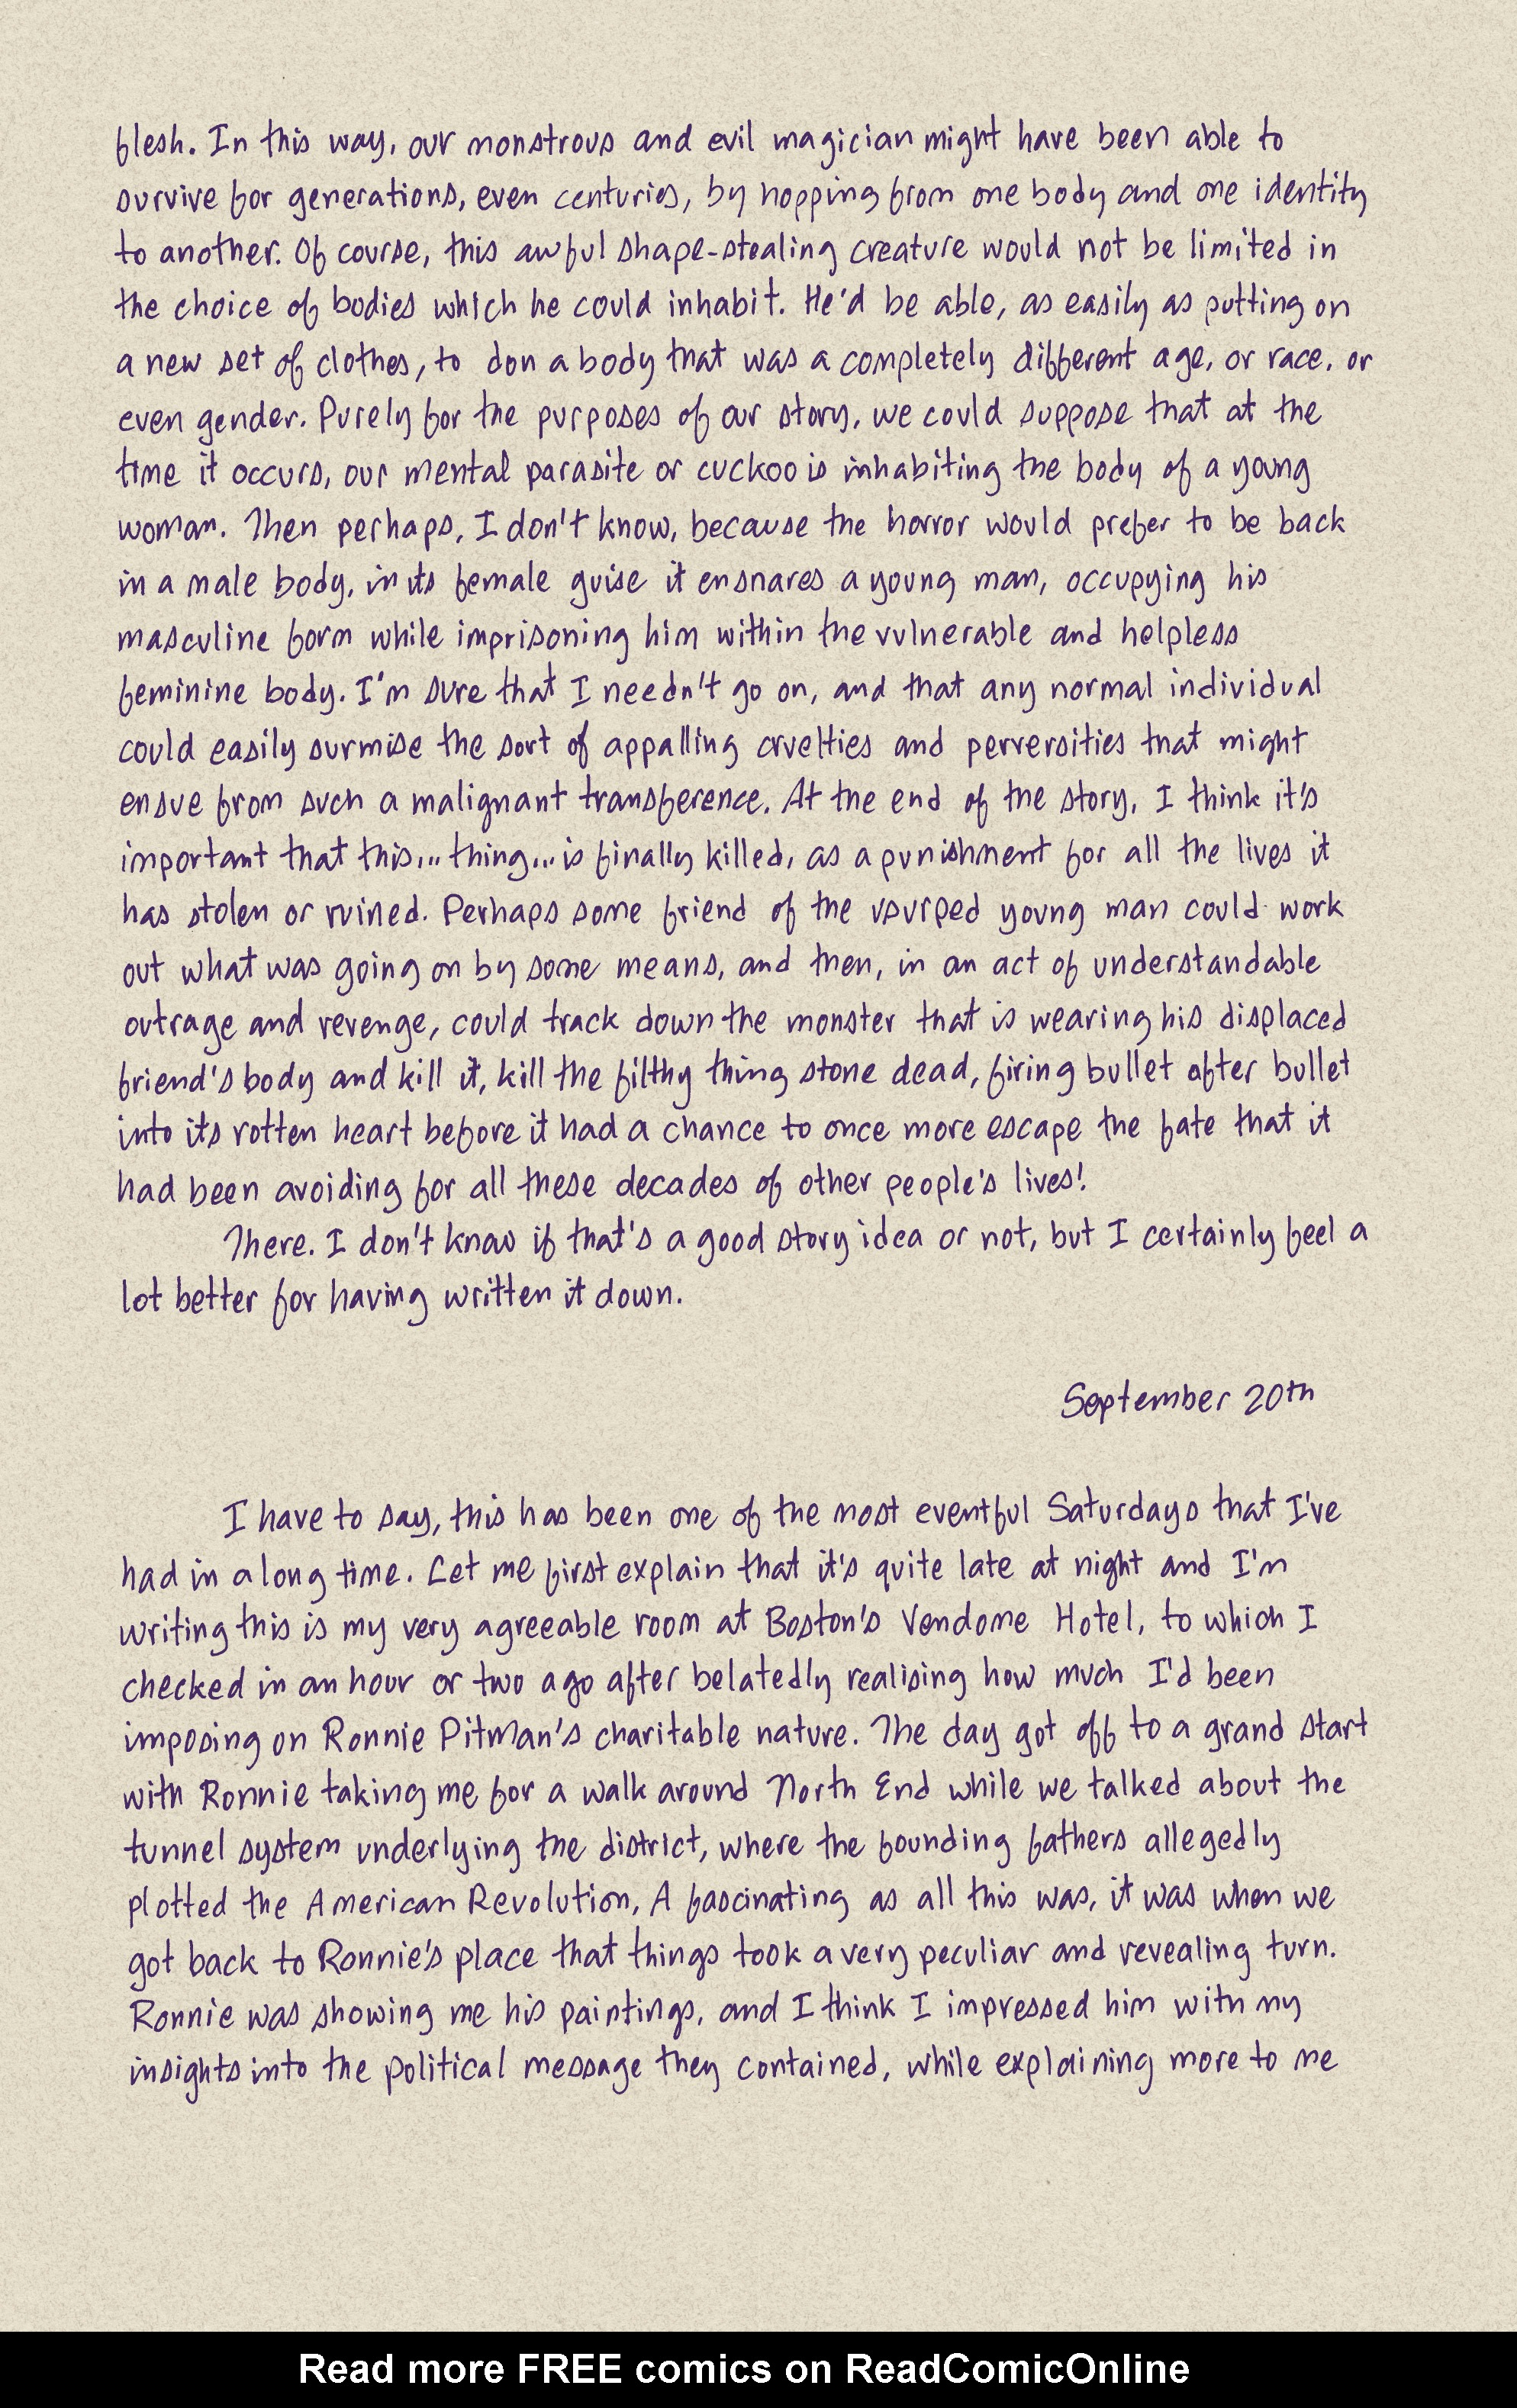 flesh. In this way, our monstrous and evil magician might have been able to
survive for generations, even centuries, by hopping from one body and one identity
to another. Of course, this awful shape-stealing creature would not be limited in
the choice of bodies which he could inhabit. He'd be able, as easily as putting on
a new set of clothes, to don a body that was a completely different age, or race, or
even gender. Purely for the purposes of our story, we could suppose that at the
time it occurs, our mental parasite or cuckoo is inhabiting the body of a young
woman. Then perhaps, I don't know, because the horror would prefer to be back
in a male body, in its female guise it ensnares a young man, occupying his
masculine form while imprisoning him within the vulnerable and helpless
feminine body. I'm sure that I needn't go on, and that any normal individual
could easily surmise the sort of appalling cruelties and perversities that might
ensue from such a malignant transference. At the end of the story, I think it's
important that this... thing... is finally killed, as a punishment for all the lives it
has stolen or ruined. Perhaps some friend of the usurped young man could work
out what was going on by some means, and then, in an act of understandable
outrage and revenge, could track down the monster that is wearing his displaced
friend's body and kill it, kill the filthy thing stone dead, firing bullet after bullet
into its rotten heart before it had a chance to once more escape the fate that it
had been avoiding for all these decades of other people's lives!
There. I don't know if that's a good story idea or not, but I certainly feel a
lot better for having written it down.
September 20th
I have to say, this has been one of the most eventful Saturdays that I've
had in a long time. Let me first explain that it's quite late at night and I'm
writing this is my very agreeable room at Boston's Vendome Hotel, to which I
checked in an hour or two ago after belatedly realising how much I'd been
imposing on Ronnie Pitman's charitable nature. The day got off to a grand start
with Ronnie taking me for a walk around North End while we talked about the
tunnel system underlying the district, where the founding fathers allegedly
plotted the American Revolution, A fascinating as all this was, it was when we
got back to Ronnie's place that things took a very peculiar and revealing turn.
Ronnie was showing me his paintings, and I think I impressed him with my
insights into the political message they contained, while explaining more to me
Read more FREE comics on ReadComicOnline